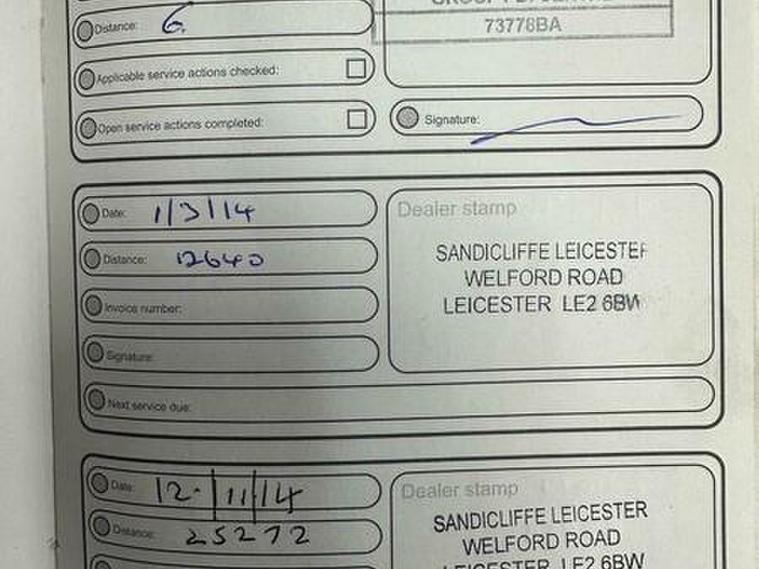 Distance: 6
73778BA
Applicable service actions checked:
Open service actions completed:
Signature:
Date: 1/3/14
Dealer stamp
Distance: 12640
SANDICLIFFE LEICESTER
WELFORD ROAD
LEICESTER LE2 6BW
Invoice number:
Signature:
Next service due:
Date: 12.11/14
Dealer stamp
Distance: 25272
SANDICLIFFE LEICESTER
WELFORD ROAD
LEICESTER LE2 6BW